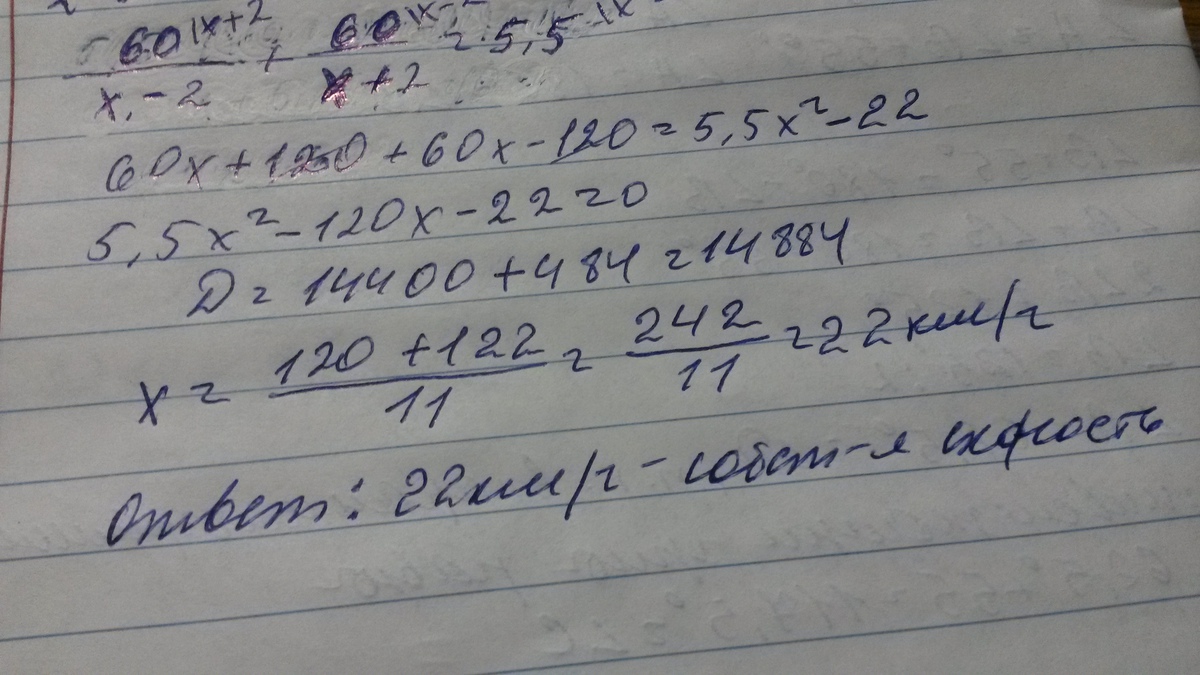 60|x+2 / x-2 + 60|x-2 / x+2 = 5,5
60x+120+60x-120=5,5x²-22
5,5x²-120x-22=0
D=14400+484=14884
x= 120+122 / 11 = 242 / 11 =22км/ч
Ответ: 22км/ч - собст-я скорость